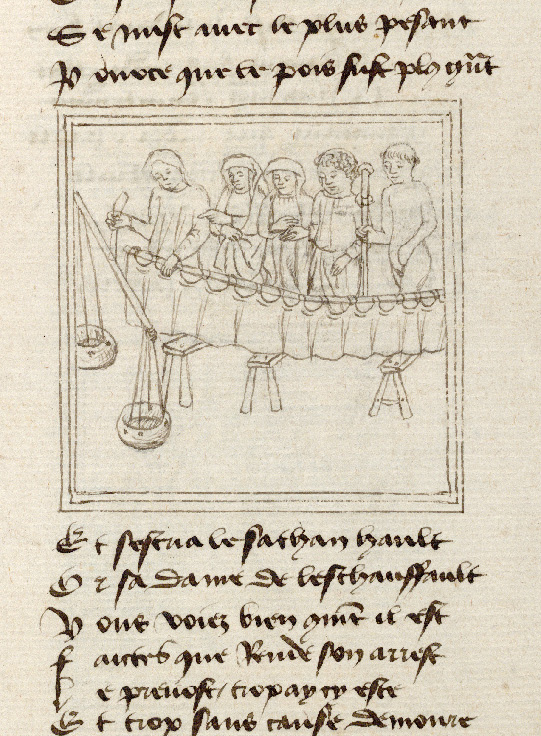 Se mist avec le plus pesant
Pource que le pois fust plus grãt
Et sescria le sathan hault
Or sa dame de leschauffault
Vous voiez bien quãt il est
faictes que Rende son arrest
le prevost / trop ay cy este
Et trop sans cause demoure